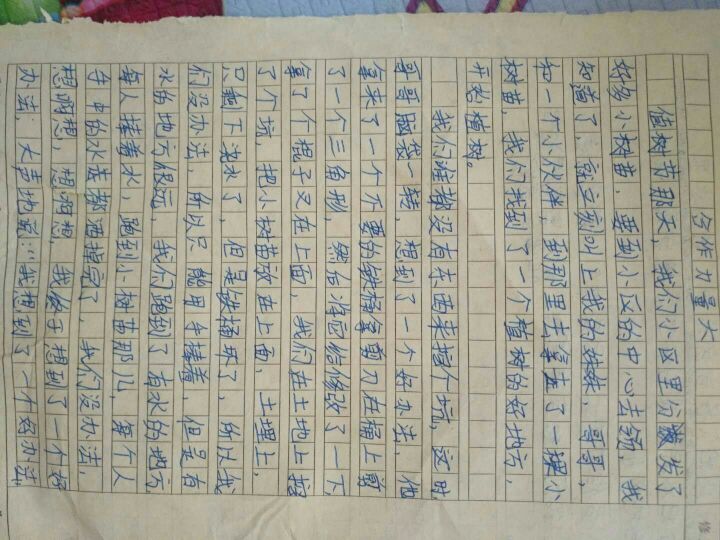 合作力量大
值树节那天，我们小区里分发了
好多小树苗，要到小区的中心去领，我
知道了，就立刻叫上我的妹妹，哥哥，
和一个小伙伴，到那里去拿了一棵小
树苗，我们找到了一个植树的好地方，
开始植树。
我们谁都没有东西来挖个坑，这时
哥哥脑袋一转，想到了一个好办法，他
拿来了一个不要的铁桶拿剪刀在桶上剪
了一个三角形，然后把它给修改了一下，
拿了个棍子叉在上面，我们在土地上挖
了个坑，把小树苗放在上面，土埋上，
只剩下浇水了，但是铁桶坏了，所以我
们没办法，所以只能用手捧着，但是有
水的地方很远，我们跑到了有水的地方，
每人捧着水，跑到小树苗那儿，每个人
手中的水差都洒掉完了，我们没办法，
想啊想，想啊想，我终于想到了一个好
办法，大声地说：“我想到了一个好办法，